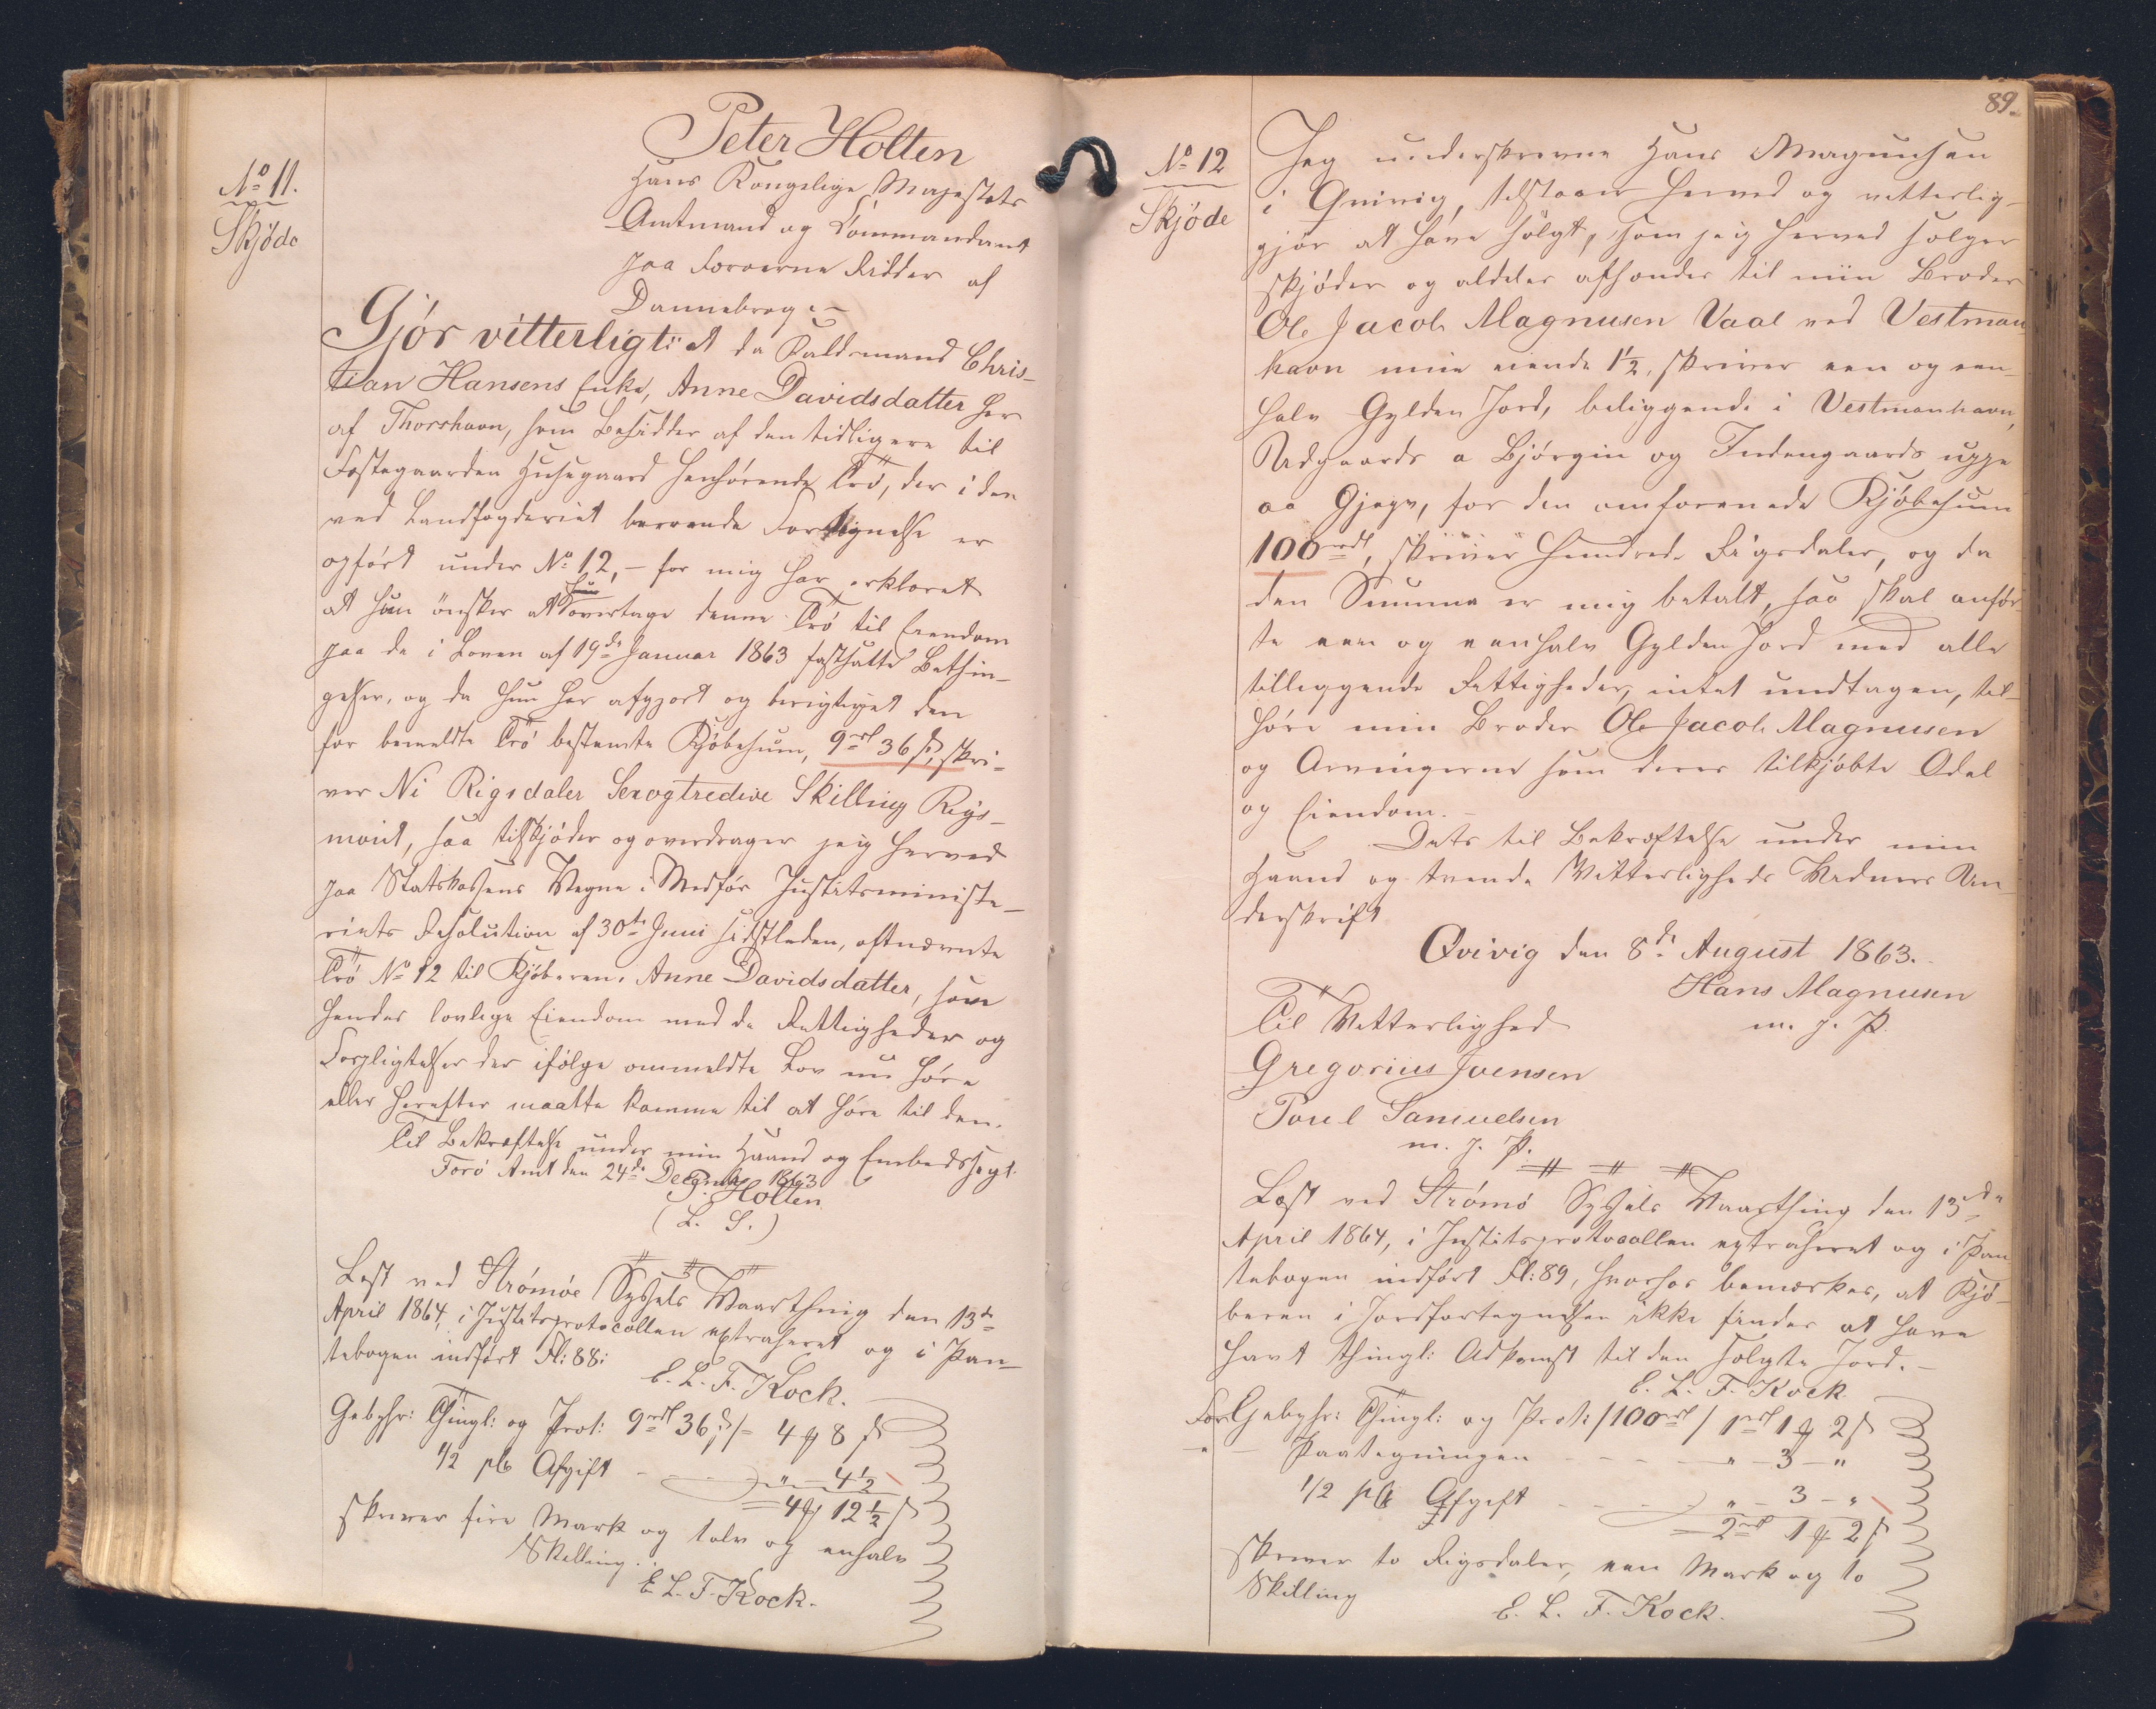 No 11.
Skjøde
Peter Holten
Hans Kongelige Majestæts
Amtmand og Commandant
paa Færøerne Ridder af
Dannebroge
Gjör vitterligt: at da Kaldsmand Chris-
tian Hansens Enke, Anne Davidsdatter her
af Thorshavn, som Besidder af den tidligere til
Fæstegaarden Husegaard henhørende Trö, der i den
ved Landfogderiet beroende Fortegnelse er
opført under No 12, - for mig har erklæret
at hun ønsker at hun overtage denne Trö til Eiendom
paa de i Loven af 19de Januar 1863 fastsatte Betin-
gelser, og da hun har afgjort og berigtiget den
for bemeldte Trö bestemte Kjøbesum, 9rd 36 ß, skri-
ver Ni Rigsdaler Sexogtredive Skilling Rigs-
mønt, saa tilskjøder og overdrager jeg herved
paa Statskassens Vegne i Medfør Justitsministe-
riets Resolution af 30te Juni sidstleden, oftnævnte
Trö No 12 til Kjøberen, Anne Davidsdatter, som
hendes lovlige Eiendom med de Rettigheder og
Forpligtelser der ifølge ommeldte Lov nu høre
eller herefter maatte komme til at høre til den.
Til Bekræftelse under min Haand og Embedssegl.
Færö Amt den 24de Decmbr 1863
P. Holten
(L. S.)
Læst ved Strömöe Syssels Vaarthing den 13de
April 1864, i Justitsprotocollen extraheret og i Pan-
tebogen indført Fl: 88:
E. L. F. Kock.
Gebyhr: Thingl: og Prot: 9rd 36 ß /= 4 # 8 ß
1/2 pCt Afgift - " - 4 1/2
= 4 # 12 1/2 ß
skriver fire Mark og tolv og enhalv
Skilling.
E. L. F. Kock.
89.
No 12
Skjöde
Jeg underskrevne Hans Magnusen
i Qvivig, tilstaaer herved og vitterlig-
gjør at have solgt, som jeg herved sælger
skjøder og aldeles afhænder til min Broder
Ole Jacob Magnusen Vaal ved Vestman
havn min eiende 1 1/2, skriver een og een
halv Gylden Jord, beliggende i Vestmanhavn,
Udgaards a Bjørgin og Indengaards uppe
aa Gjegv, for den omforenede Kjøbesum
100rdl, skriver Hundrede Rigsdaler, og da
den Summa er mig betalt, saa skal anför
te een og eenhalv Gylden Jord med alle
tilliggende Rettigheder, intet undtagen, til-
høre min Broder Ole Jacob Magnusen
og Arvingerne som deres tilkjøbte Odel
og Eiendom. -
Dets til Bekræftelse under min
Haand og tvende Vitterligheds Vidners Un-
derskrift
Qvivig den 8de August 1863.
Hans Magnusen
m. p. P.
Til Vitterlighed
Gregorius Joensen
Poul Samuelsen
m. p. P.
Læst ved Strömö Syssels Vaarthing den 13de
April 1864, i Justitsprotocollen extraheret og i Pan
tebogen indført Fl: 89, hvorhos bemærkes, at Kjø-
beren i Jordfortegnelsen ikke findes at have
havt thingl: Adkomst til den solgte Jord. -
E. L. F. Kock
For Gebyhr: Thingl: og Prot: /100rd/ 1rd 1 # 2 ß
" - Paategningen - - - - " - 3 - "
1/2 pCt Afgift - - - " - 3 - "
= 2rd 1 # 2 ß
skriver to Rigsdaler, een Mark og to
Skilling
E. L. F. Kock.